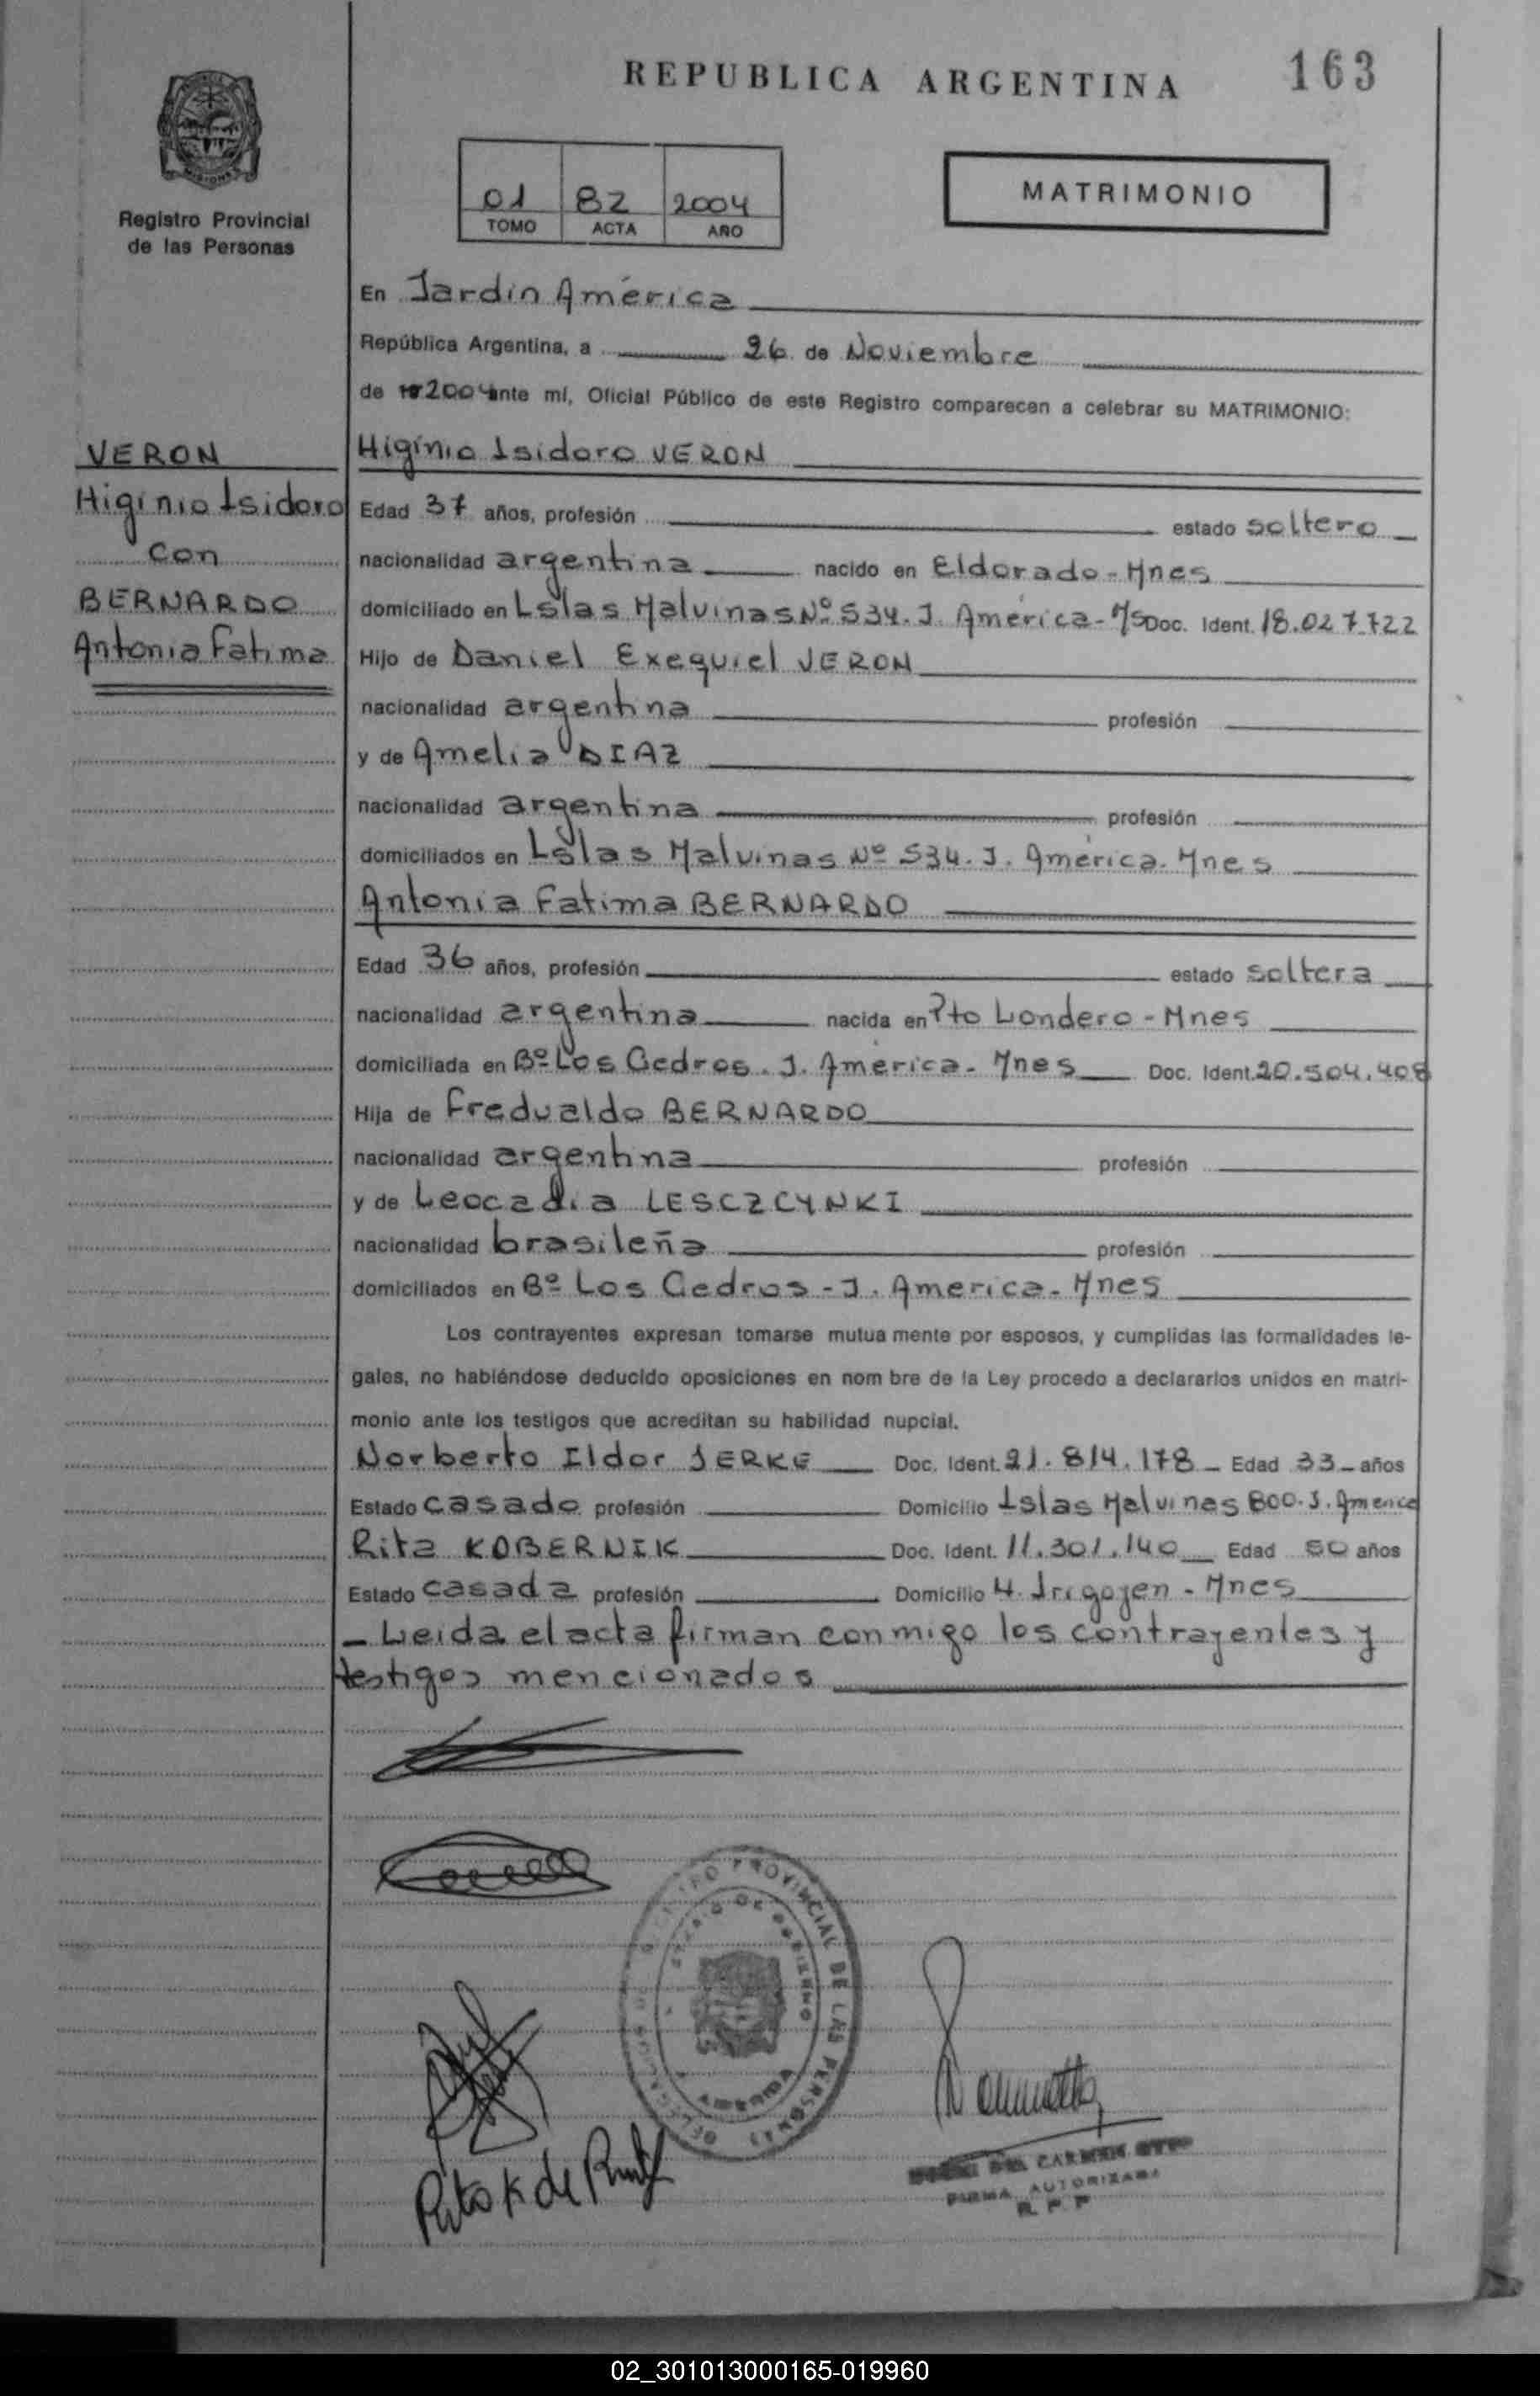 REPUBLICA ARGENTINA
163
Registro Provincial
de las Personas
01 82 2004
TOMO ACTA AÑO
MATRIMONIO
En Jardín América
República Argentina, a 26 de Noviembre
de 2004 ante mí, Oficial Público de este Registro comparecen a celebrar su MATRIMONIO:
VERON
Higinio Isidoro
con
BERNARDO
Antonia Fatima
Higinio Isidoro VERON
Edad 37 años, profesión estado soltero
nacionalidad argentina nacido en Eldorado - Mnes
domiciliado en Islas Malvinas Nº 534. J. América - M/s Doc. Ident. 18.027.722
Hijo de Daniel Exequiel VERON
nacionalidad argentina profesión
y de Amelia DIAZ
nacionalidad argentina profesión
domiciliados en Islas Malvinas Nº 534. J. América. Mnes
Antonia Fatima BERNARDO
Edad 36 años, profesión estado soltera
nacionalidad argentina nacida en Pto Londero - Mnes
domiciliada en Bº Los Cedros. J. América - Mnes Doc. Ident. 20.504.408
Hija de Fredualdo BERNARDO
nacionalidad argentina profesión
y de Leocadia LESCZCYNKI
nacionalidad brasileña profesión
domiciliados en Bº Los Cedros - J. America - Mnes
Los contrayentes expresan tomarse mutua mente por esposos, y cumplidas las formalidades le-
gales, no habiéndose deducido oposiciones en nom bre de la Ley procedo a declararlos unidos en matri-
monio ante los testigos que acreditan su habilidad nupcial.
Norberto Ildor JERKE Doc. Ident. 21.814.178 - Edad 33 - años
Estado casado profesión Domicilio Islas Malvinas 800. J. America
Rita KOBERNIK Doc. Ident. 11.301.140 Edad 50 años
Estado casada profesión Domicilio H. Irigoyen - Mnes
- Leida el acta firman conmigo los contrayentes y
testigos mencionados
PROVINCIAL DE LAS PERSONAS
Rita K de
DEL CARMEN
FIRMA AUTORIZADA
R. P. P
02_301013000165-019960